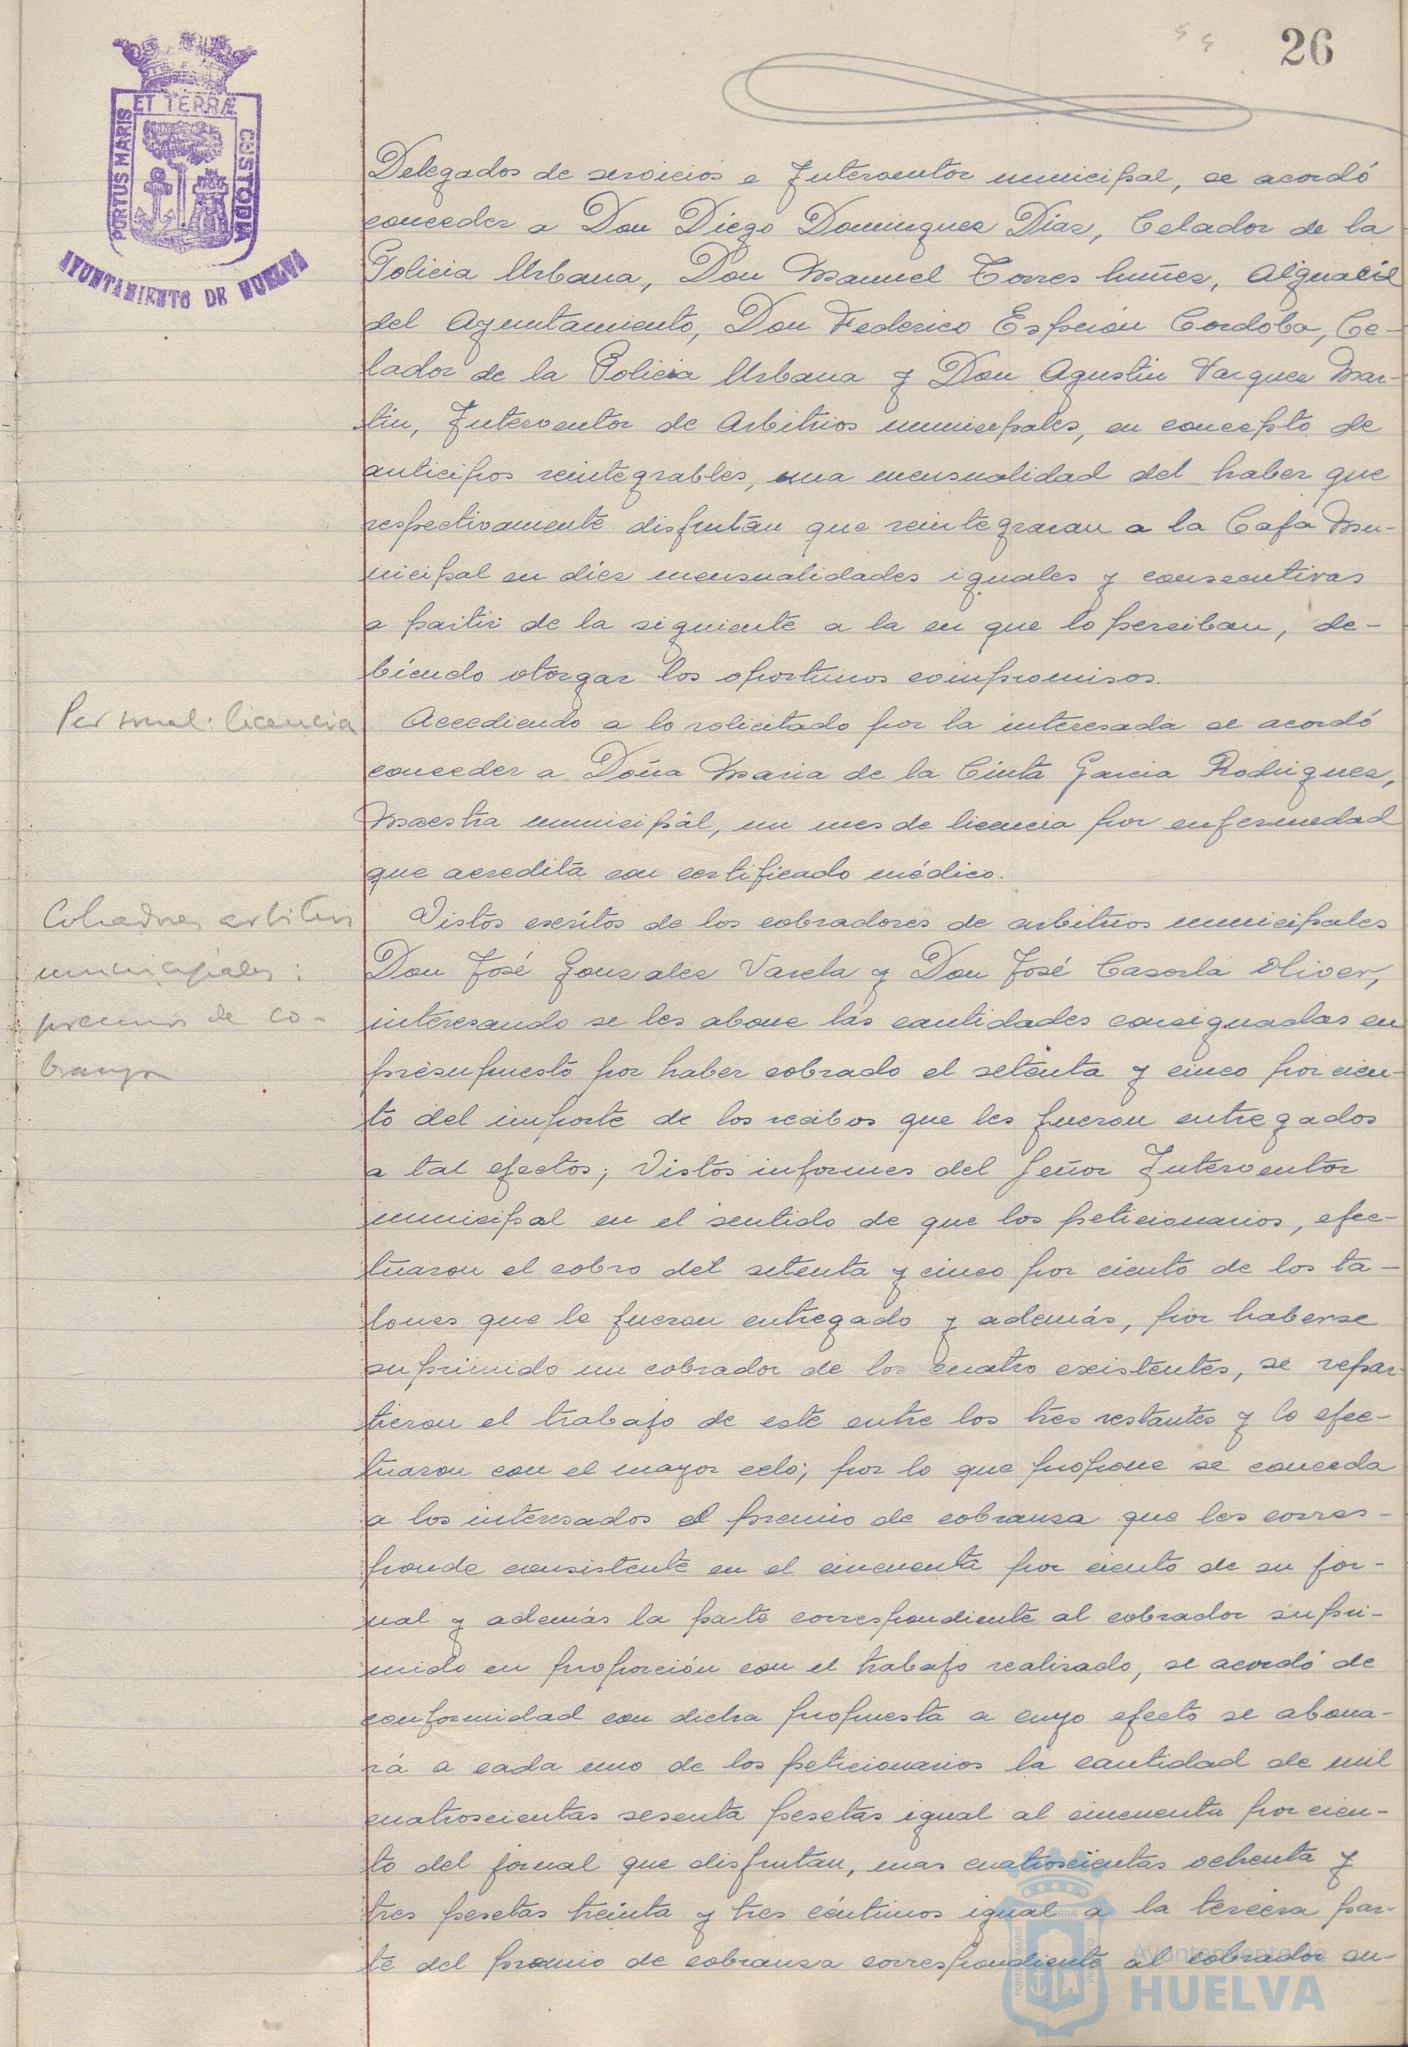 26
PORTUS MARIS ET TERRÆ CUSTODIA
AYUNTAMIENTO DE HUELVA
Delegados de servicios e Interventor municipal, se acordó
conceder a Don Diego Dominguez Diaz, Celador de la
Policia Urbana, Don Manuel Torres Nuñez, Alguacil
del Ayuntamiento, Don Federico Cordoba, Ce-
lador de la Policia Urbana y Don Agustin Vazquez Mar-
tin, Interventor de Arbitrios municipales, en concepto de
anticipos reintegrables, una mensualidad del haber que
respectivamente disfrutan que reintegraran a la Caja Mu-
nicipal en diez mensualidades iguales y consecutivas
a partir de la siguiente a la en que lo perciban, de-
biendo otorgar los oportunos compromisos.
Personal: licencia
Accediendo a lo solicitado por la interesada se acordó
conceder a Doña Maria de la Cinta Garcia Rodriguez,
Maestra municipal, un mes de licencia por enfermedad
que acredita con certificado médico.
Cobradores arbitrios
municipales:
premios de co-
branza
Vistos escritos de los cobradores de arbitrios municipales
Don José Gonzalez Varela y Don José Casorla Oliver,
interesando se les abone las cantidades consignadas en
presupuesto por haber cobrado el setenta y cinco por cien-
to del importe de los recibos que les fueron entregados
a tal efectos; Vistos informes del Señor Interventor
municipal en el sentido de que los peticionarios, efec-
tuaron el cobro del setenta y cinco por ciento de los ta-
lones que le fueron entregado y además, por haberse
suprimido un cobrador de los cuatro existentes, se repar-
tieron el trabajo de este entre los tres restantes y lo efec-
tuaron con el mayor celo; por lo que propone se conceda
a los interesados el premio de cobranza que les corres-
ponde consistente en el cincuenta por ciento de su jor-
nal y además la parte correspondiente al cobrador supri-
mido en proporción con el trabajo realizado, se acordó de
conformidad con dicha propuesta a cuyo efecto se abona-
rá a cada uno de los peticionarios la cantidad de mil
cuatroscientas sesenta pesetas igual al cincuenta por cien-
to del jornal que disfrutan, mas cuatroscientas ochenta y
tres pesetas treinta y tres céntimos igual a la tercera par-
te del premio de cobranza correspondiente al cobrador su-
Ayuntamiento de
HUELVA